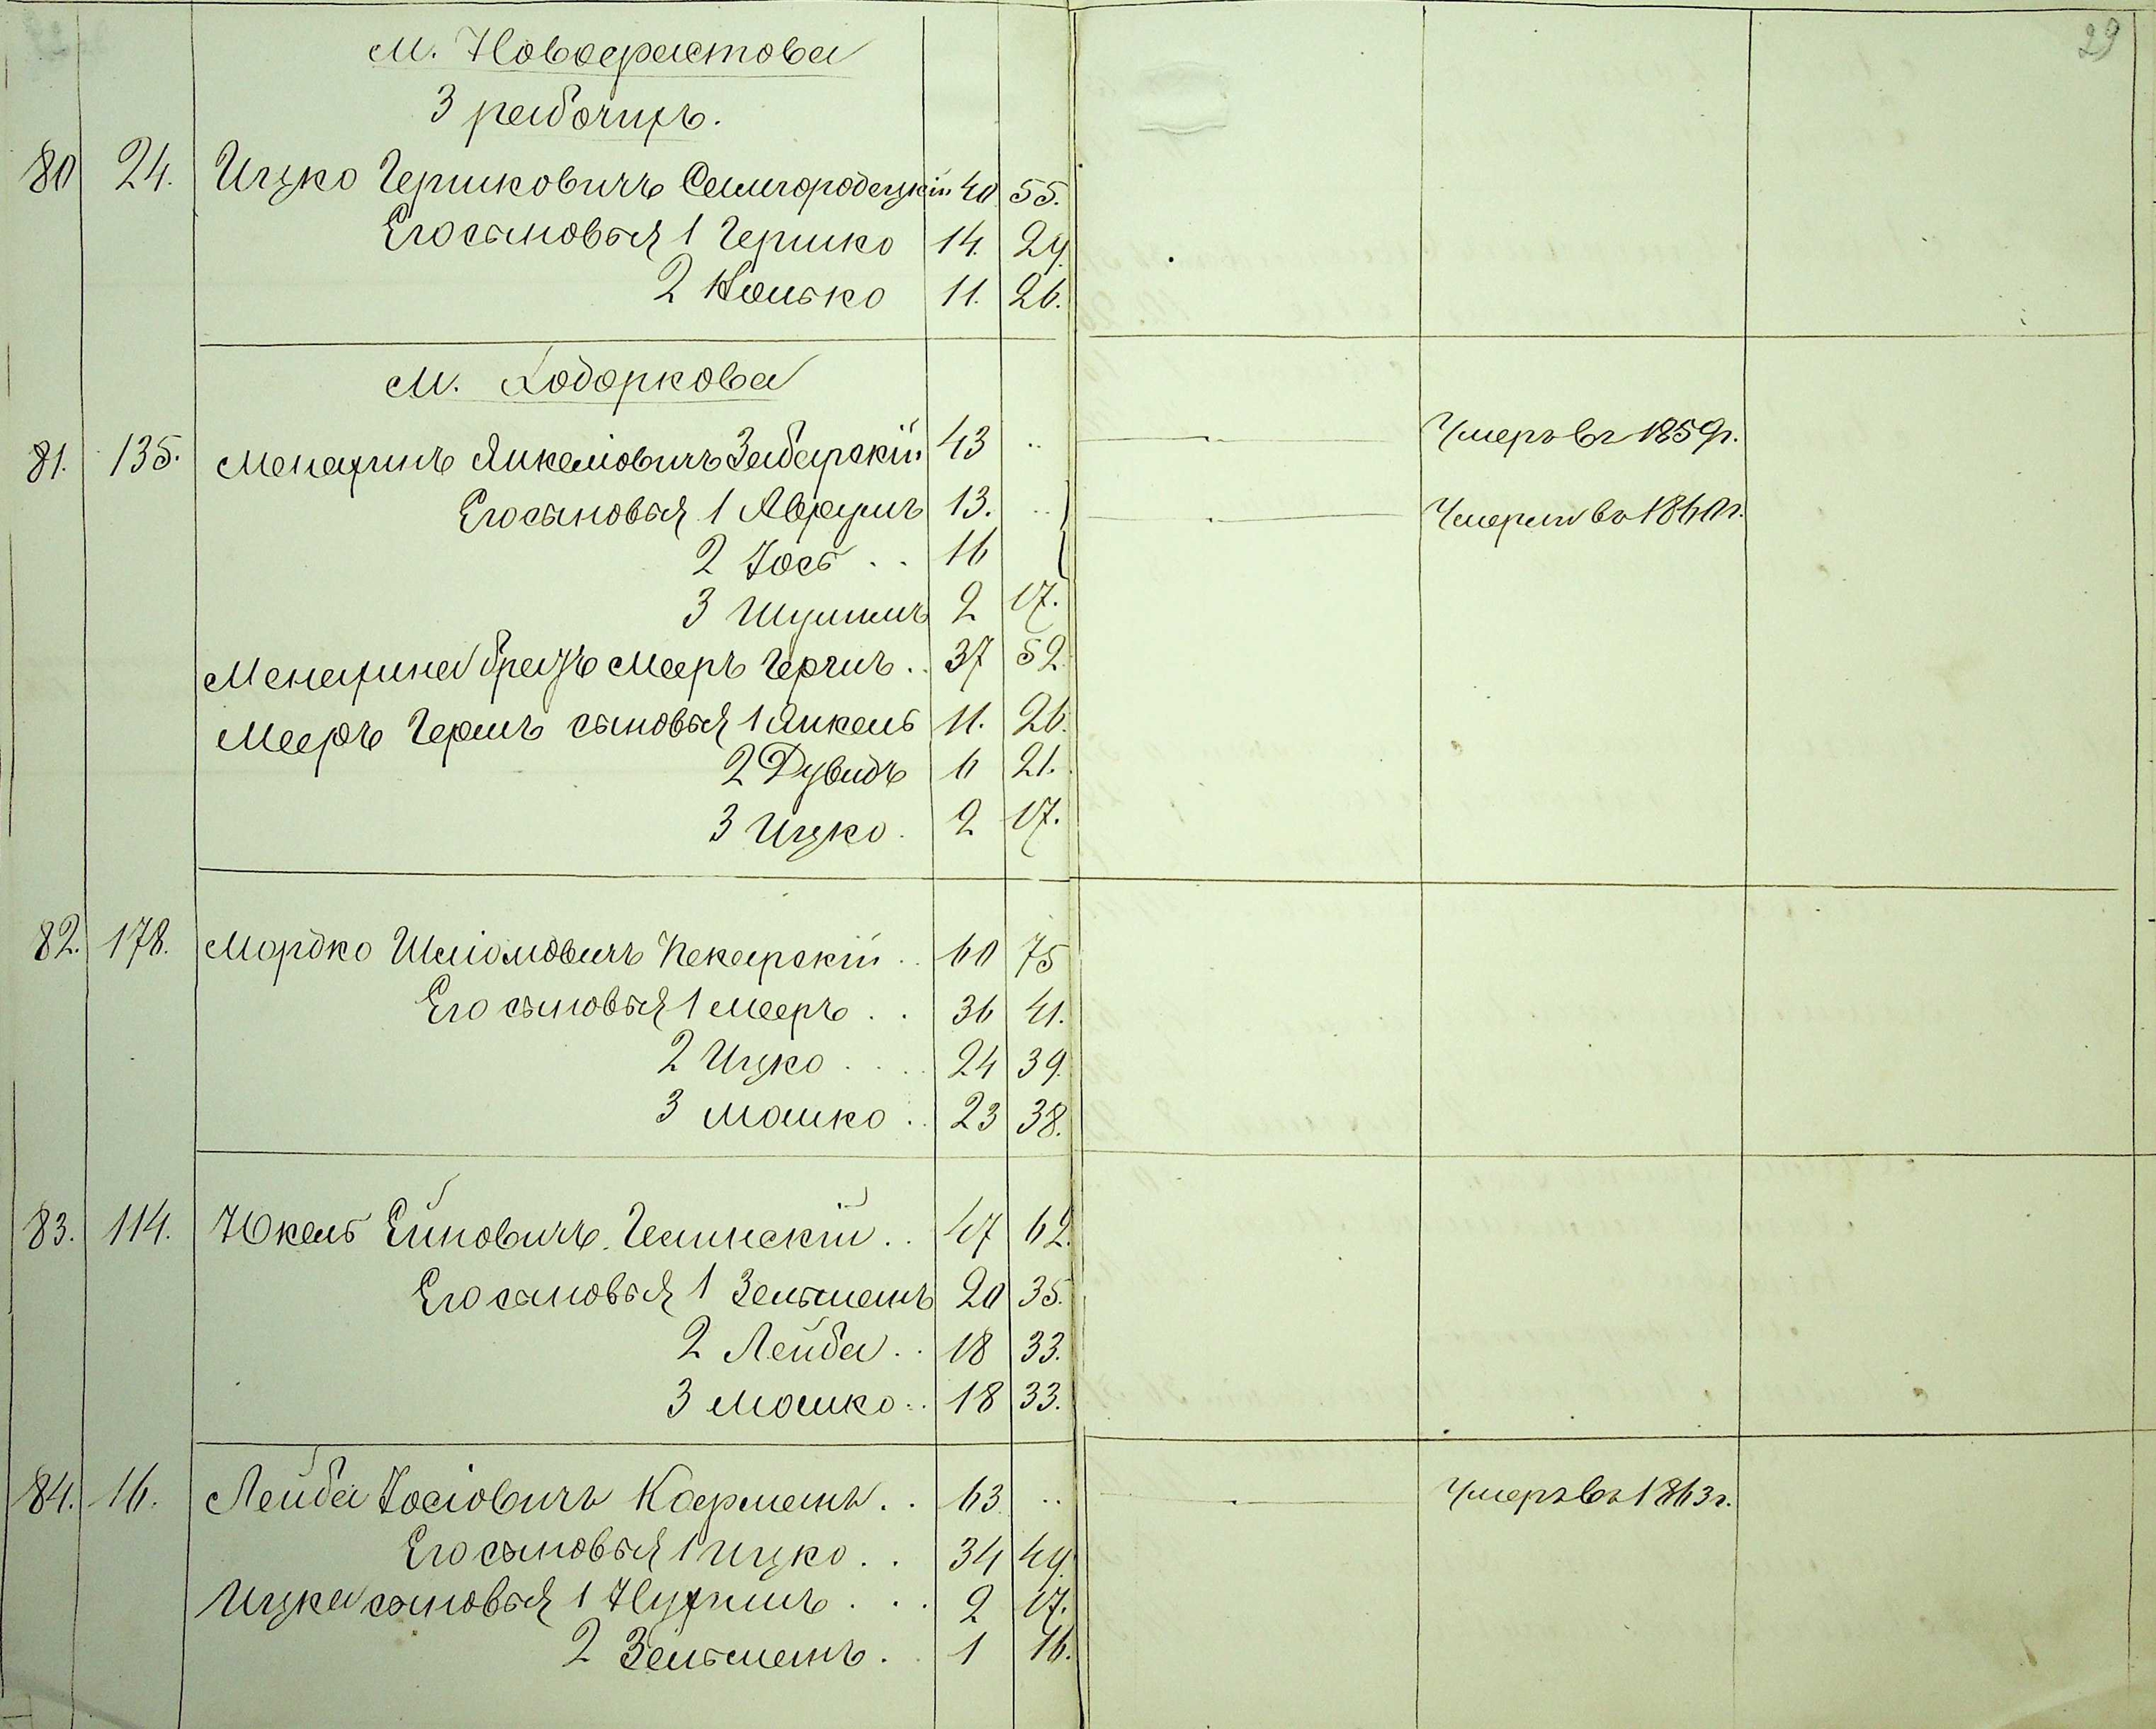 29
м. Новофастова
3 рабочихъ.
80 24. Ицко Гершковичъ Семгородецкій 40 55.
Его сыновья 1 Гершко 14. 29.
2 11. 26.
м. Ходоркова
81. 135. Менахимъ Янкеліовичъ Забарскій 43 .. Умеръ въ 1859 г.
Его сыновья 1 Аврумъ 13. .. Умерли въ 1860 г.
2 Іось .. 16
3 Шулимъ 2 17.
Менахима братъ Мееръ Герчикъ .. 37 52.
Мееръ Герш сыновья 1 Янкель 11. 26.
2 Дувидъ 6 21.
3 Ицко. 2 17.
82. 178. Мордко Шліомовичъ Пекарскій .. 60 75
Его сыновья 1 Мееръ .. 36 41.
2 Ицко .... 24 39.
3 Мошко .. 23 38.
83. 114. Юкель Ейновичъ .. 47 62.
Его сыновья 1 Зельманъ 20 35.
2 Лейба .. 18 33.
3 Мошко .. 18 33.
84. 16. Лейба Іосіовичъ Кафманъ .. 63 .. Умеръ въ 1863 г.
Его сыновья 1 Ицко .. 34 49.
Ицка сыновья 1 Нухимъ ... 2 17.
2 Зельманъ .. 1 16.